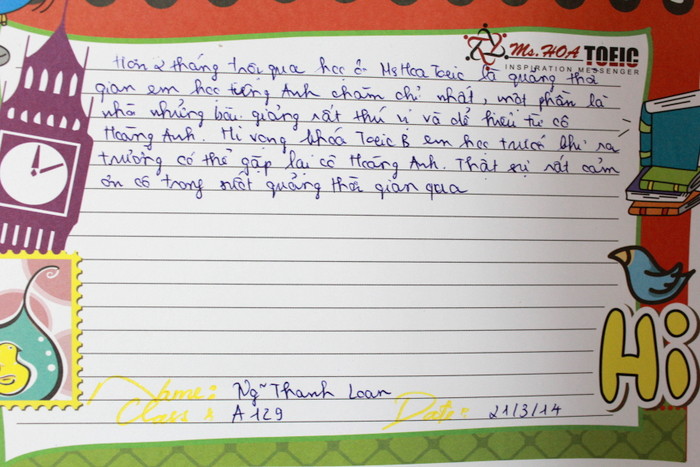 Ms. HOA TOEIC
INSPIRATION MESSENGER
Hơn 2 tháng trôi qua học ở Ms Hoa Toeic là quãng thời
gian em học tiếng Anh chăm chỉ nhất, một phần là
nhờ những bài giảng rất thú vị và dể hiểu từ cô
Hoàng Anh. Hi vọng khóa Toeic B em học trước khi ra
trường có thể gặp lại cô Hoàng Anh. Thật sự rất cảm
ơn cô trong suốt quảng thời gian qua
Hi
Name: Ng~ Thanh Loan
Class: A129 Date: 21/3/14